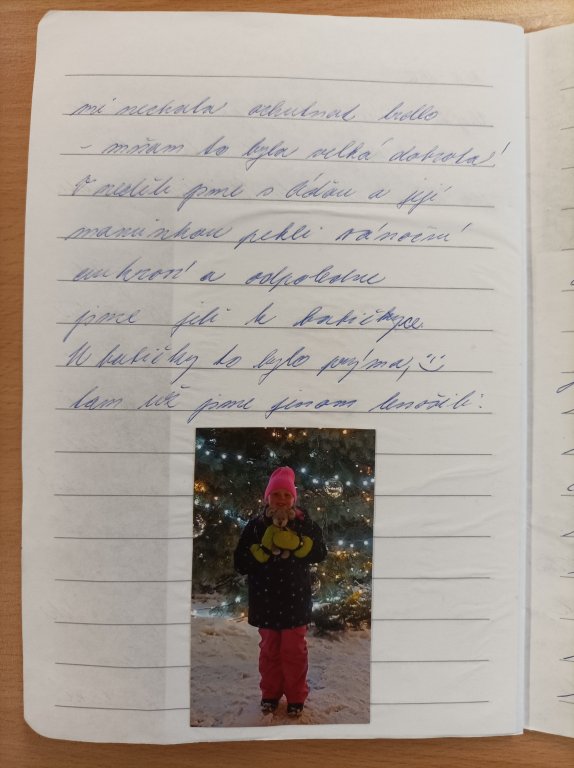 mi nechala ochutnat trdlo
- mňam to byla velká dobrota!
V neděli jsme s Áďou a její
maminkou pekli vánoční
cukroví a odpoledne
jsme jeli k babičkyce.
U babičky to bylo prýma, :)
tam už jsme jenom lenošili.